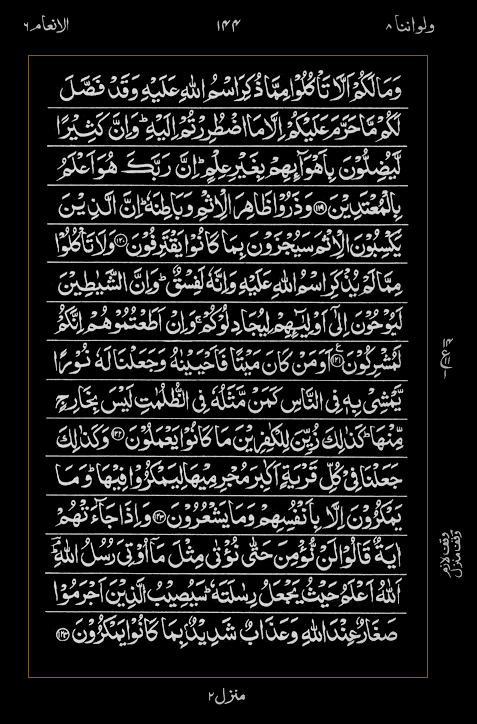 ولواننا ٨
١٤٤
الانعام ٦
وَمَا لَكُمْ اَلَّا تَاْكُلُوْا مِمَّا ذُكِرَ اسْمُ اللّٰهِ عَلَيْهِ وَقَدْ فَصَّلَ
لَكُمْ مَّا حَرَّمَ عَلَيْكُمْ اِلَّا مَا اضْطُرِرْتُمْ اِلَيْهِ ؕ وَاِنَّ كَثِيْرًا
لَّيُضِلُّوْنَ بِاَهْوَآئِهِمْ بِغَيْرِ عِلْمٍ ؕ اِنَّ رَبَّكَ هُوَ اَعْلَمُ
بِالْمُعْتَدِيْنَ ﴿۱۱۹﴾ وَذَرُوْا ظَاهِرَ الْاِثْمِ وَبَاطِنَهٗ ؕ اِنَّ الَّذِيْنَ
يَكْسِبُوْنَ الْاِثْمَ سَيُجْزَوْنَ بِمَا كَانُوْا يَقْتَرِفُوْنَ ﴿۱۲۰﴾ وَلَا تَاْكُلُوْا
مِمَّا لَمْ يُذْكَرِ اسْمُ اللّٰهِ عَلَيْهِ وَاِنَّهٗ لَفِسْقٌ ؕ وَاِنَّ الشَّيٰطِيْنَ
لَيُوْحُوْنَ اِلٰٓى اَوْلِيٰٓـئِهِمْ لِيُجَادِلُوْكُمْ ۚ وَاِنْ اَطَعْتُمُوْهُمْ اِنَّكُمْ
لَمُشْرِكُوْنَ ﴿۱۲۱﴾ اَوَمَنْ كَانَ مَيْتًا فَاَحْيَيْنٰهُ وَجَعَلْنَا لَهٗ نُوْرًا
يَّمْشِيْ بِهٖ فِي النَّاسِ كَمَنْ مَّثَلُهٗ فِي الظُّلُمٰتِ لَيْسَ بِخَارِجٍ
مِّنْهَا ؕ كَذٰلِكَ زُيِّنَ لِلْكٰفِرِيْنَ مَا كَانُوْا يَعْمَلُوْنَ ﴿۱۲۲﴾ وَكَذٰلِكَ
جَعَلْنَا فِيْ كُلِّ قَرْيَةٍ اَكٰبِرَ مُجْرِمِيْهَا لِيَمْكُرُوْا فِيْهَا ؕ وَمَا
يَمْكُرُوْنَ اِلَّا بِاَنْفُسِهِمْ وَمَا يَشْعُرُوْنَ ﴿۱۲۳﴾ وَاِذَا جَآءَتْهُمْ
اٰيَةٌ قَالُوْا لَنْ نُّؤْمِنَ حَتّٰى نُؤْتٰى مِثْلَ مَآ اُوْتِيَ رُسُلُ اللّٰهِ ؔ
اَللّٰهُ اَعْلَمُ حَيْثُ يَجْعَلُ رِسٰلَتَهٗ ؕ سَيُصِيْبُ الَّذِيْنَ اَجْرَمُوْا
صَغَارٌ عِنْدَ اللّٰهِ وَعَذَابٌ شَدِيْدٌۢ بِمَا كَانُوْا يَمْكُرُوْنَ ﴿۱۲۴﴾
وقف لازم
وقف منزل
منزل ٢